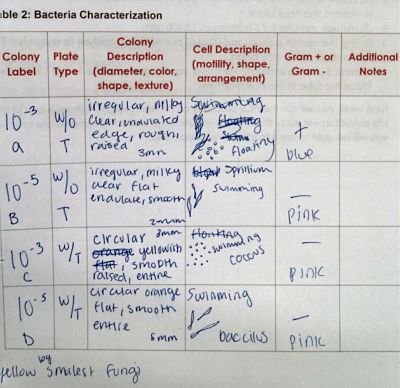 ble 2: Bacteria Characterization
Colony Label
Plate Type
Colony Description (diameter, color, shape, texture)
Cell Description (motility, shape, arrangement)
Gram + or Gram -
Additional Notes
10^-3
a
w/o
T
irregular, milky
clear, undulated
edge, rough,
raised
3mm
Swimming
floating
floating
+
blue
10^-5
B
w/o
T
irregular, milky
clear flat
endulate, smooth
2mm
Sprillium
swimming
—
pink
10^-3
C
w/T
circular 3mm
orange yellowish
flat, smooth
raised, entire
floating
swimming
coccus
—
pink
10^-5
D
w/T
circular orange
flat, smooth
entire
5mm
Swimming
baccilus
—
pink
yellow by smallest fungi